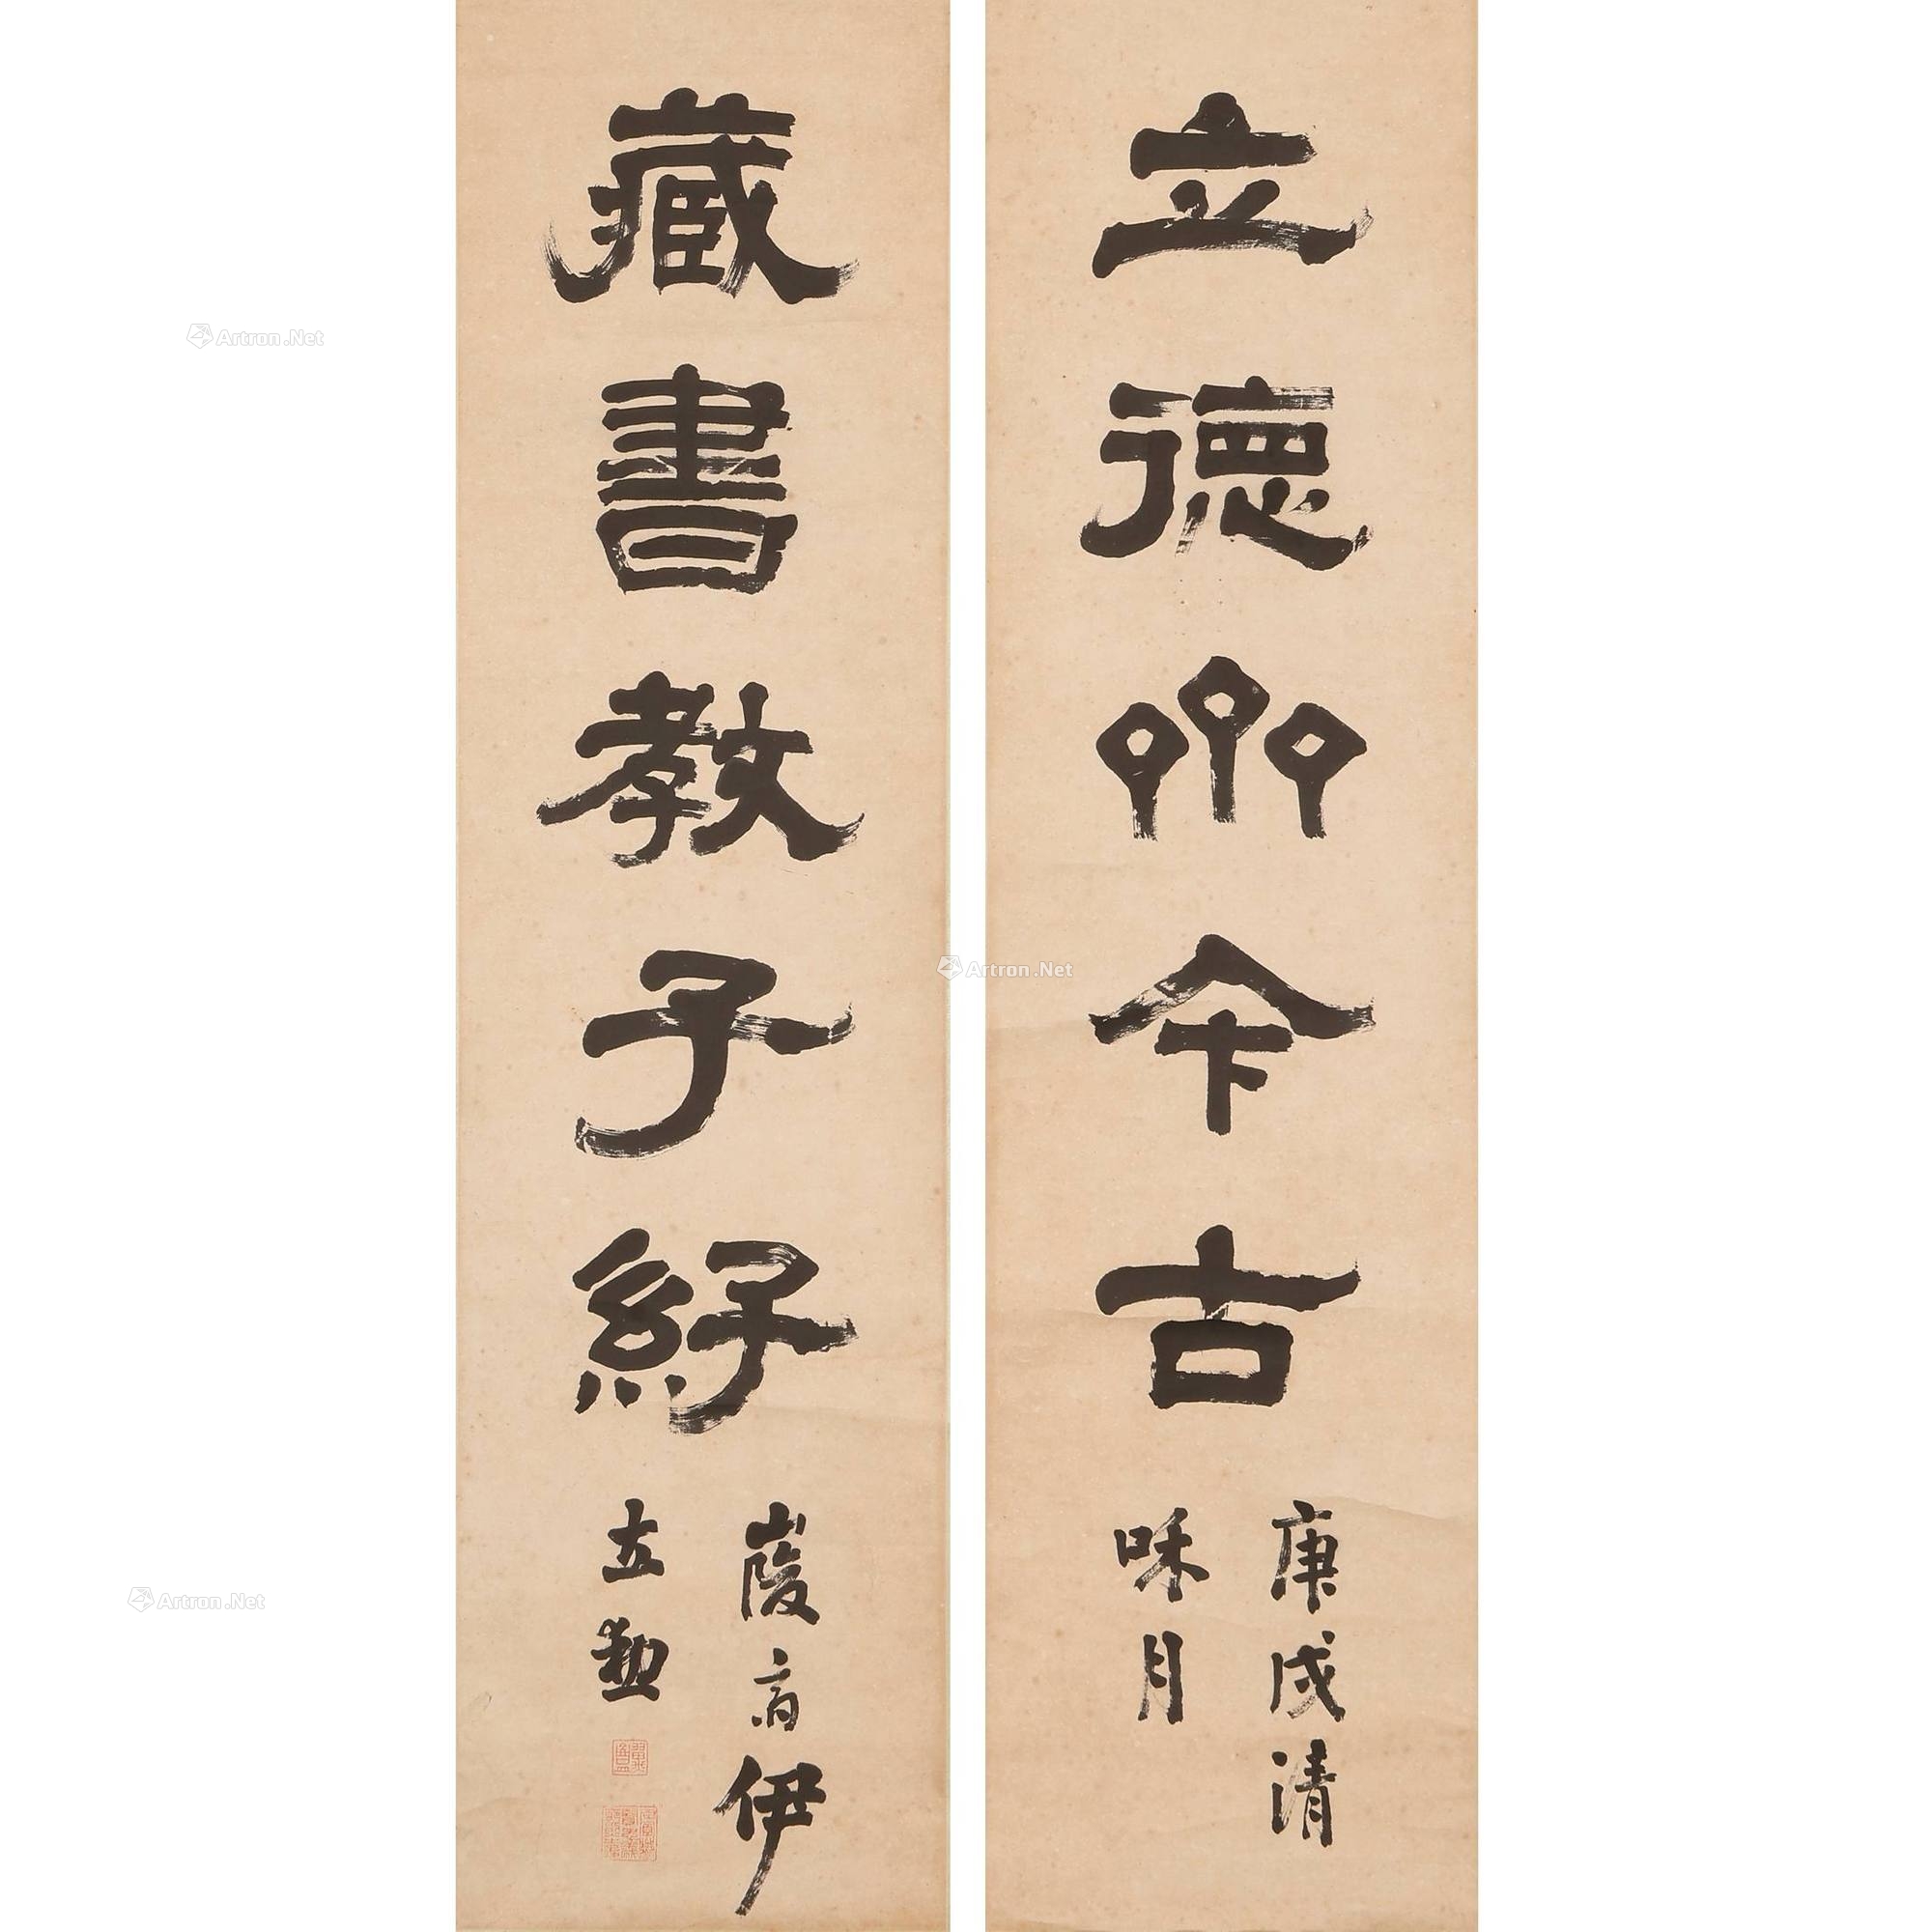 立德齊今古
庚戌清
咊月
藏書教子孫
峻齋伊
立勳
Artron.Net
Artron.Net
Artron.Net